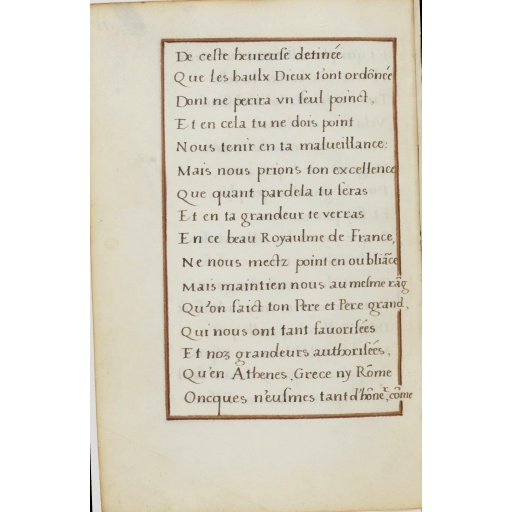 De ceſte heureuſe detinée
Que les haulx Dieux t'ont ordõnée
Dont ne perira vn ſeul poinct,
Et en cela tu ne dois point
Nous tenir en ta malueillance:
Mais nous prions ton excellence
Que quant pardela tu ſeras
Et en ta grandeur te verras
En ce beau Royaulme de France,
Ne nous mectz point en oubliãce
Mais maintien nous au meſme rãg
Qu'on faict ton Pere et Pere grand,
Qui nous ont tant fauoriſées
Et noz grandeurs authoriſées,
Qu'en Athenes, Grece ny Rõme
Oncques n'euſmes tant d'hõneʳ, cõme